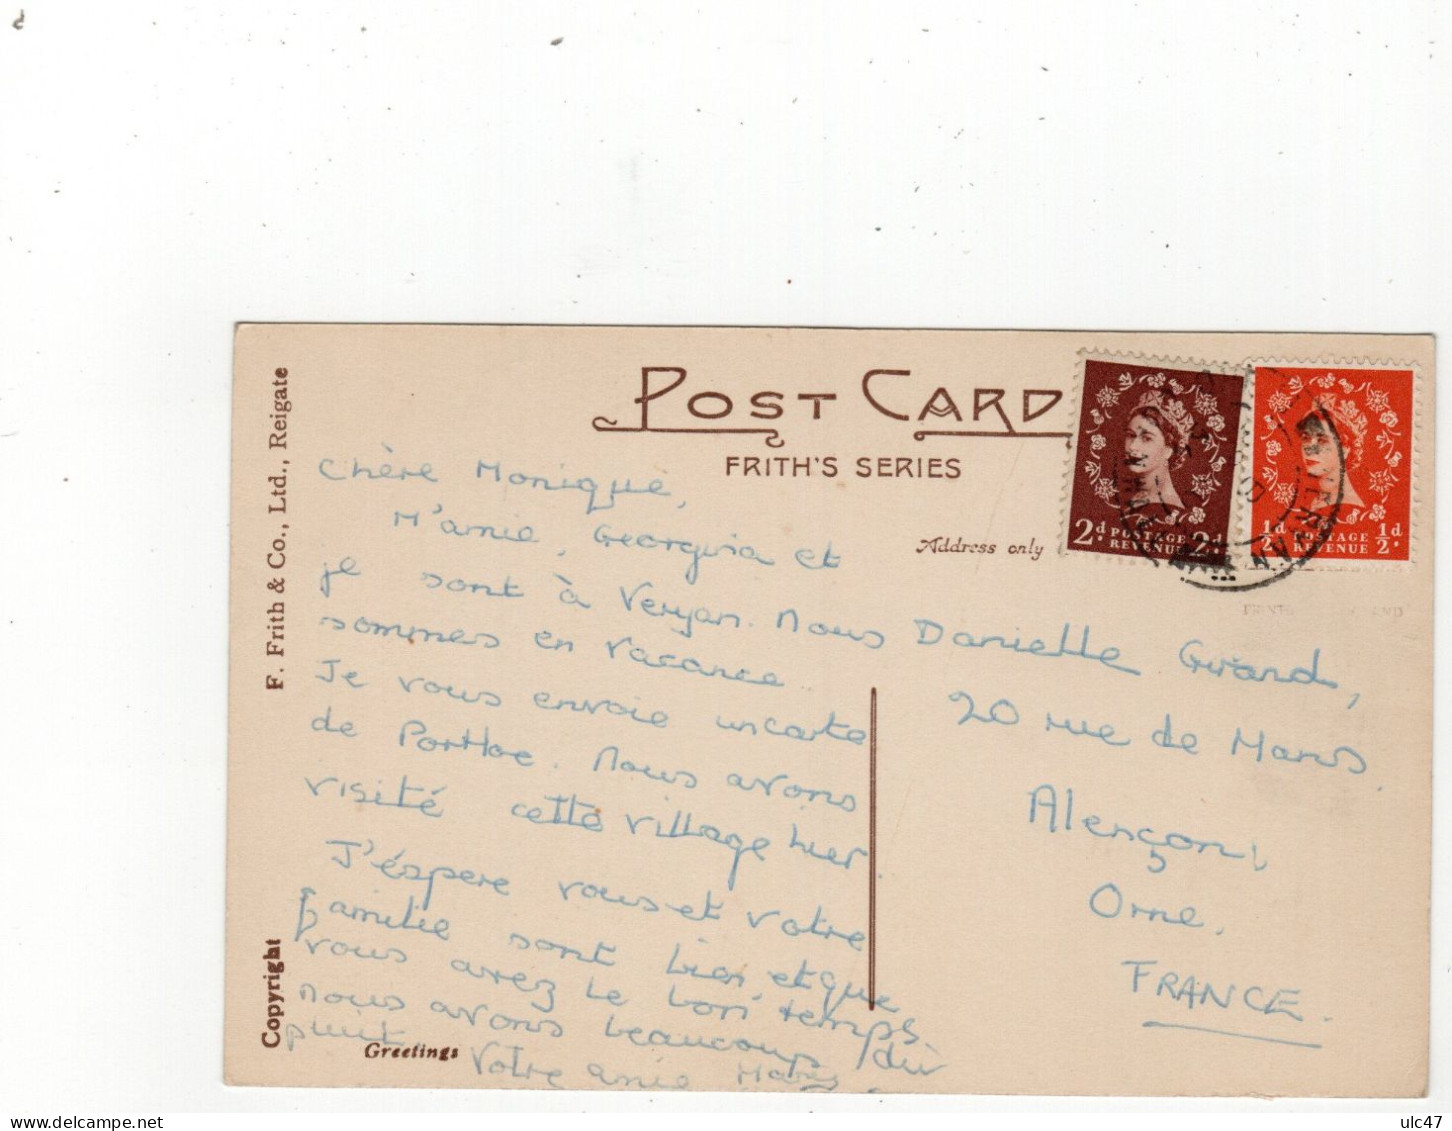 POST CARD
FRITH'S SERIES
Address only
F. Frith & Co., Ltd., Reigate
Copyright
Greetings
2d POSTAGE REVENUE 2d
½d POSTAGE REVENUE ½d
Chère Monique,
M'amie, Georgina et
je sont à Veryan. Nous
sommes en vacance.
Je vous envoie uncarte
de Portloe. Nous avons
visité cette village hier.
J'éspere vous et votre
familie sont bien, et que
vous avez le bon temps
nous avons beaucoup du
Votre amie
Danielle Girard,
20 rue de Mans
Alençon,
Orne.
FRANCE.
ulc47